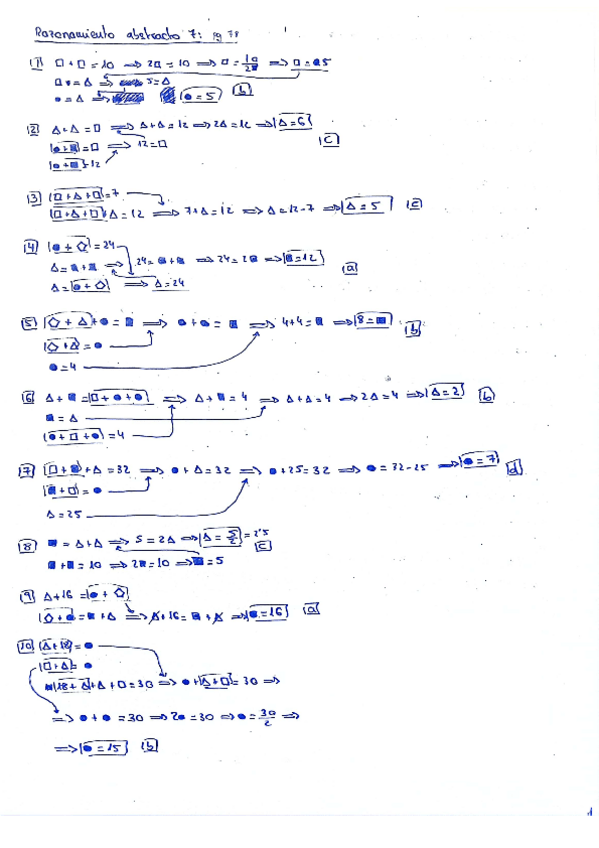 Razonamiento abstracto 7: pg 78
1) □ + □ = 10 ⟹ 2□ = 10 ⟹ □ = 10/2 ⟹ □ = 5
□ = Δ ⟹ 5 = Δ
● = Δ ⟹ ● = 5 b
2) Δ + Δ = □ ⟹ Δ + Δ = 12 ⟹ 2Δ = 12 ⟹ Δ = 6
● + ■ = □ ⟹ 12 = □ c
● + ■ = 12
3) □ + Δ + □ = 7
□ + Δ + □ + Δ = 12 ⟹ 7 + Δ = 12 ⟹ Δ = 12 - 7 ⟹ Δ = 5 c
4) ● + ⬠ = 24
Δ = ■ + ■ ⟹ 24 = ■ + ■ ⟹ 24 = 2■ ⟹ ■ = 12
Δ = ● + ⬠ ⟹ Δ = 24 a
5) ⬠ + Δ + ● = ■ ⟹ ● + ● = ■ ⟹ 4 + 4 = ■ ⟹ 8 = ■ b
⬠ + Δ = ●
● = 4
6) Δ + ■ = □ + ● + ● ⟹ Δ + ■ = 4 ⟹ Δ + Δ = 4 ⟹ 2Δ = 4 ⟹ Δ = 2 b
■ = Δ
● + □ + ● = 4
7) □ + ■ + Δ = 32 ⟹ ● + Δ = 32 ⟹ ● + 25 = 32 ⟹ ● = 32 - 25 ⟹ ● = 7 d
■ + □ = ●
Δ = 25
8) ■ = Δ + Δ ⟹ 5 = 2Δ ⟹ Δ = 5/2 = 2'5
■ + ■ = 10 ⟹ 2■ = 10 ⟹ ■ = 5 c
9) Δ + 16 = ● + ⬠
⬠ + ● = ■ + Δ ⟹ Δ + 16 = ■ + Δ ⟹ ■ = 16 a
10) Δ + 18 = ●
□ + Δ = ●
18 + Δ + Δ + □ = 30 ⟹ ● + Δ + □ = 30 ⟹
⟹ ● + ● = 30 ⟹ 2● = 30 ⟹ ● = 30/2 ⟹
⟹ ● = 15 b